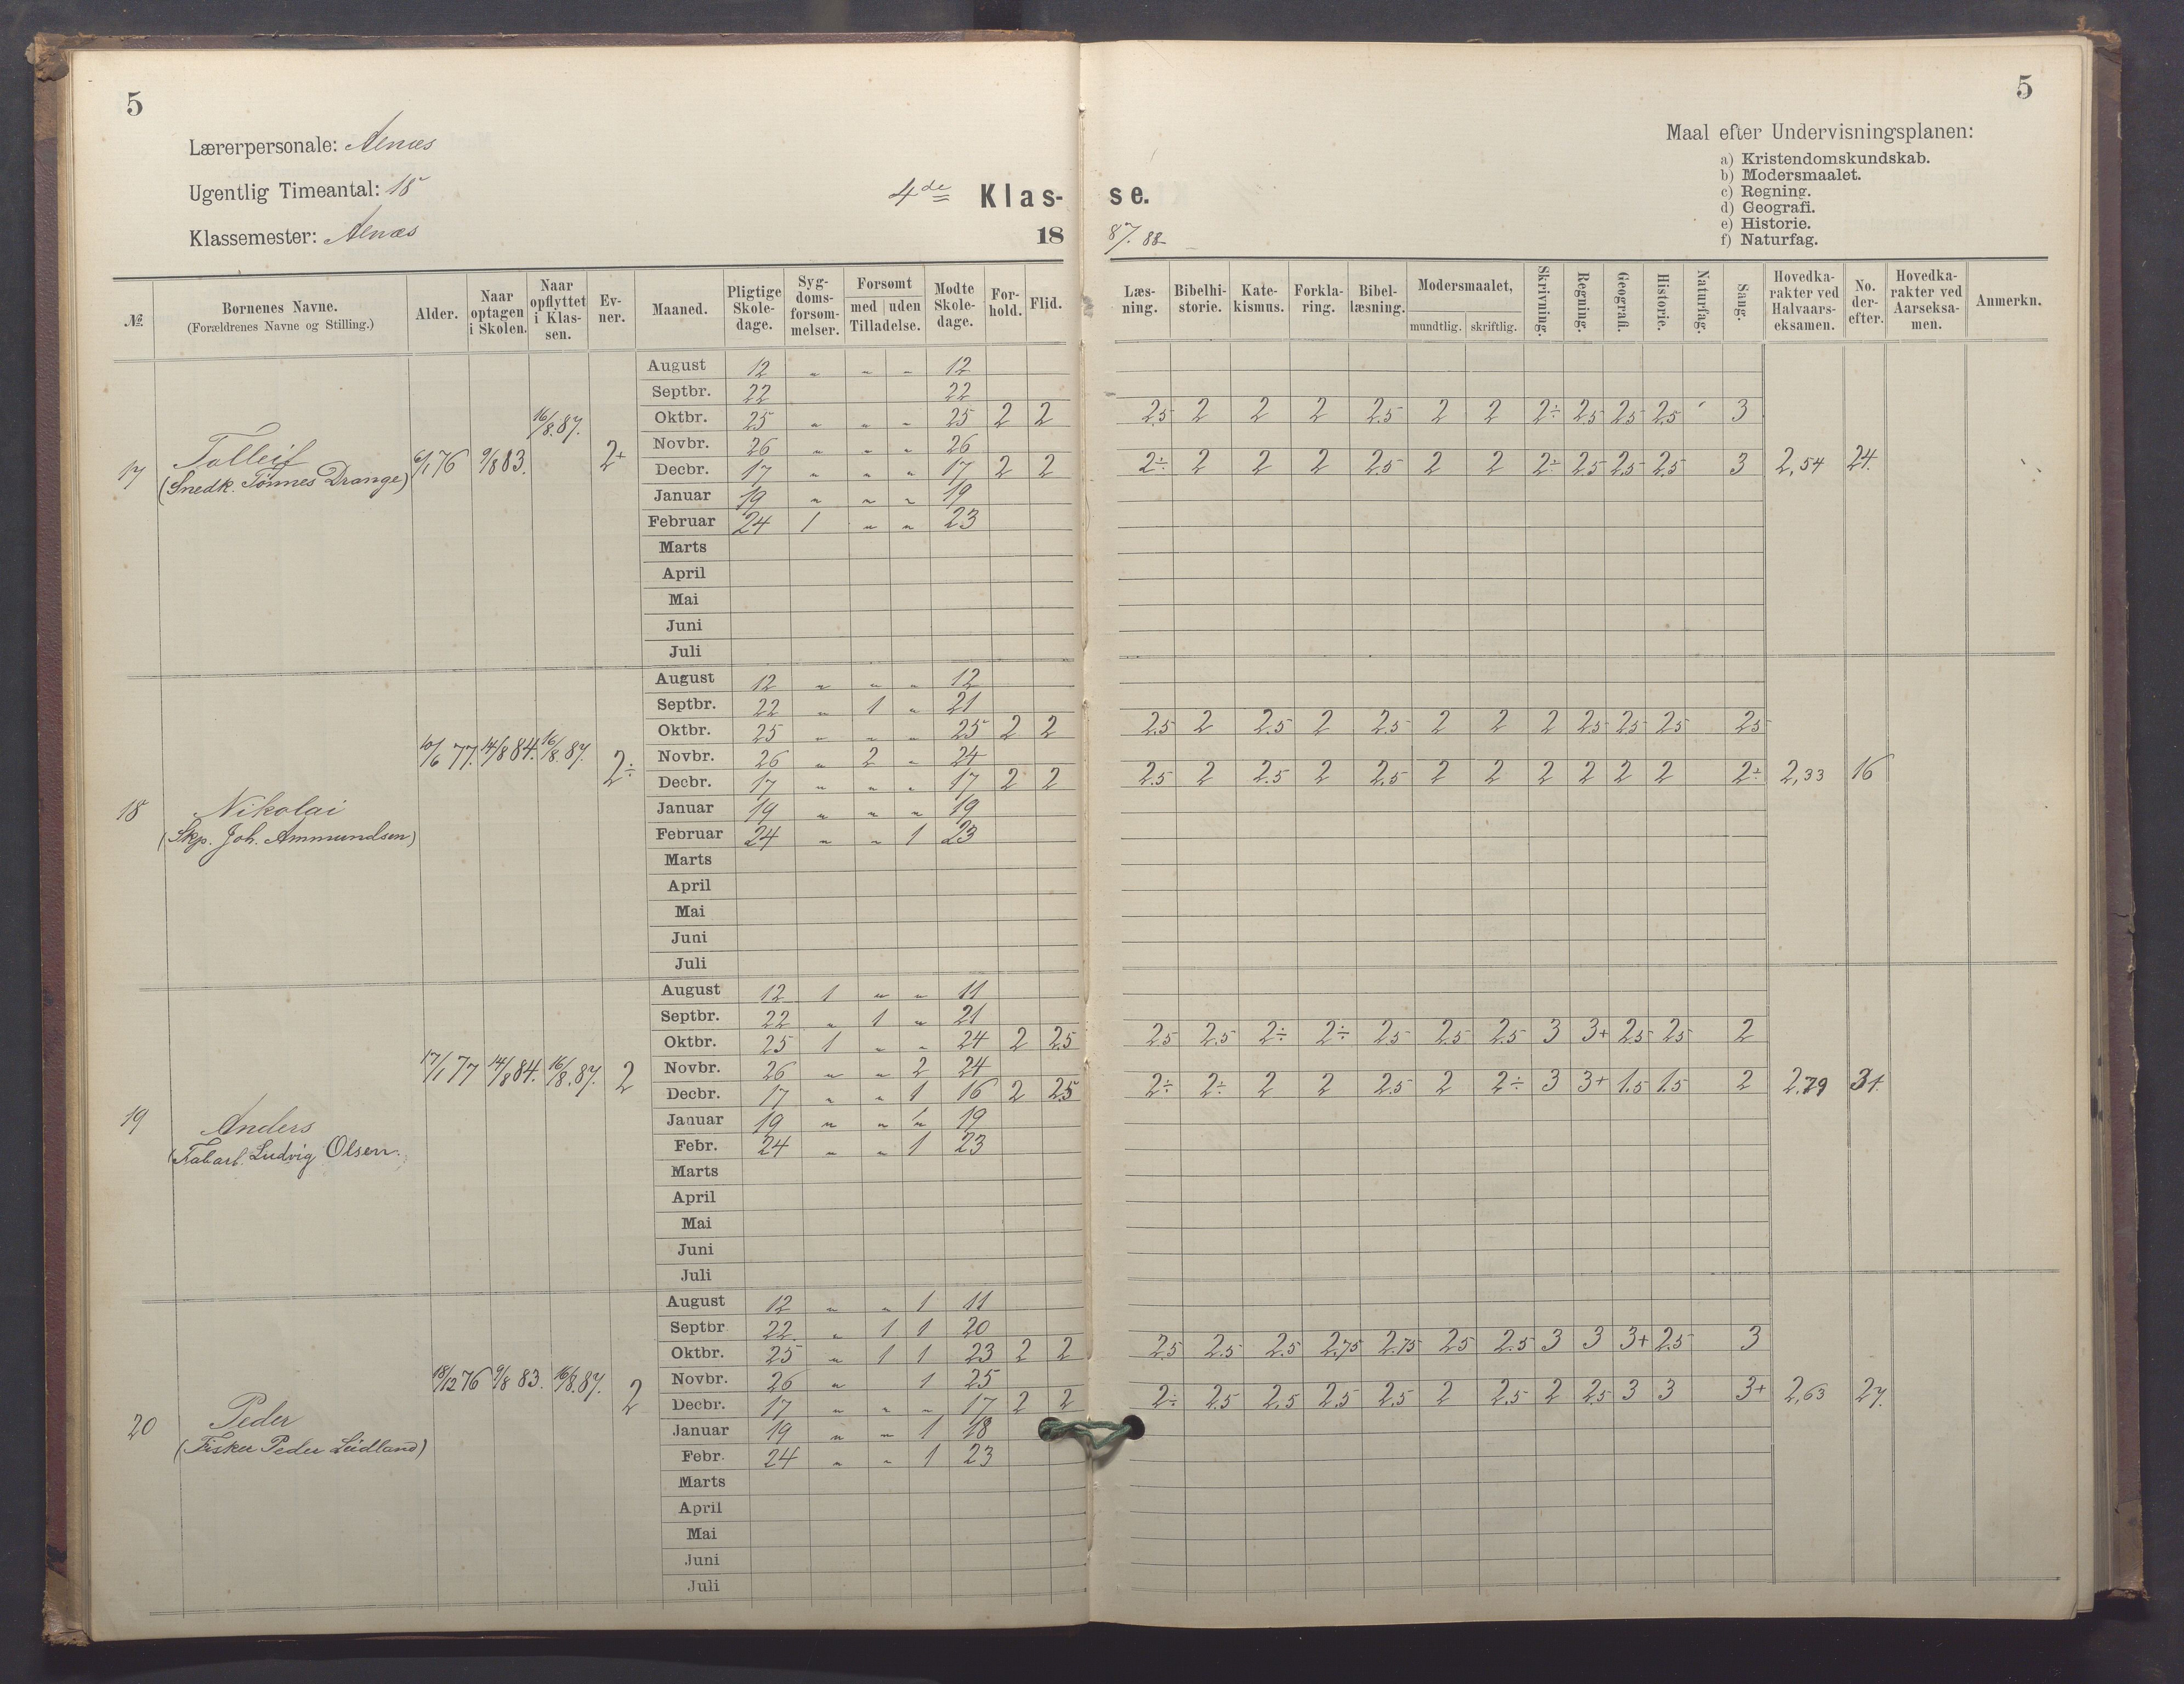 5
5
Lærerpersonale: Alnæs
Ugentlig Timeantal: 18
Klassemester: Alnæs
4de Klas- se.
18 87. 88
Maal efter Undervisningsplanen:
a) Kristendomskundskab.
b) Modersmaalet.
c) Regning.
d) Geografi.
e) Historie.
f) Naturfag.
№ Børnenes Navne. (Forældrenes Navne og Stilling.) Alder. Naar optagen i Skolen. Naar opflyttet i Klassen. Evner. Maaned. Pligtige Skoledage. Sygdomsforsømmelser. Forsømt med uden Tilladelse. Mødte Skoledage. Forhold. Flid. Læsning. Bibelhistorie. Katekismus. Forklaring. Bibellæsning. Modersmaalet, mundtlig. skriftlig. Skrivning. Regning. Geografi. Historie. Naturfag. Sang. Hovedkarakter ved Halvaarseksamen. No. derefter. Hovedkarakter ved Aarseksamen. Anmerkn.
17 Tolleif
(Snedk. Tønnes Drange) 6/1 76 9/8 83. 16/8.87. 2+
August 12 " " " 12
Septbr. 22 22
Oktbr. 25 " " " 25 2 2 2.5 2 2 2 2.5 2 2 2÷ 2.5 2.5 2.5 3
Novbr. 26 " " " 26
Decbr. 17 " " " 17 2 2 2÷ 2 2 2 2.5 2 2 2÷ 2.5 2.5 2.5 3 2,54 24.
Januar 19 " " " 19
Februar 24 1 " " 23
Marts
April
Mai
Juni
Juli
18 Nikolai
(Skp. Joh. Ammundsen) 10/6 77. 14/8 84. 16/8.87. 2÷
August 12 " " " 12
Septbr. 22 " 1 " 21
Oktbr. 25 " " " 25 2 2 2.5 2 2.5 2 2.5 2 2 2 2.5 2.5 2.5 2.5
Novbr. 26 " 2 " 24
Decbr. 17 " " " 17 2 2 2.5 2 2.5 2 2.5 2 2 2 2 2 2 2÷ 2,33 16
Januar 19 " " " 19
Februar 24 " " 1 23
Marts
April
Mai
Juni
Juli
19 Anders
(Fabarb. Ludvig Olsen. 17/1 77 14/8 84. 16/8.87. 2
August 12 1 " " 11
Septbr. 22 " 1 " 21
Oktbr. 25 1 " " 24 2 2.5 2.5 2.5 2÷ 2÷ 2.5 2.5 2.5 3 3+ 2.5 2.5 2
Novbr. 26 " " 2 24
Decbr. 17 " " 1 16 2 2.5 2÷ 2÷ 2 2 2.5 2 2÷ 3 3+ 1.5 1.5 2 2.79 31.
Januar 19 " " " 19
Febr. 24 " " 1 23
Marts
April
Mai
Juni
Juli
20 Peder
(Fisker Peder Lüdland) 18/12 76 9/8 83. 16/8.87. 2
August 12 " " 1 11
Septbr 22 " 1 1 20
Oktbr. 25 " 1 1 23 2 2 2.5 2.5 2.5 2.75 2.75 2.5 2.5 3 3 3+ 2.5 3
Novbr. 26 " 1 25
Decbr. 17 " " " 17 2 2 2÷ 2.5 2.5 2.5 2.5 2 2.5 2 2.5 3 3 3+ 2,63 27.
Januar 19 " " 1 18
Febr. 24 " " 1 23
Marts
April
Mai
Juni
Juli